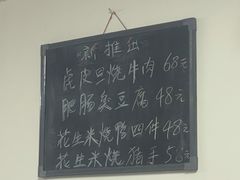 新推出
虎皮旦烧牛肉 68元
肥肠臭豆腐 48元
花生米烧鸭四件 48元
花生米烧猪手 5元